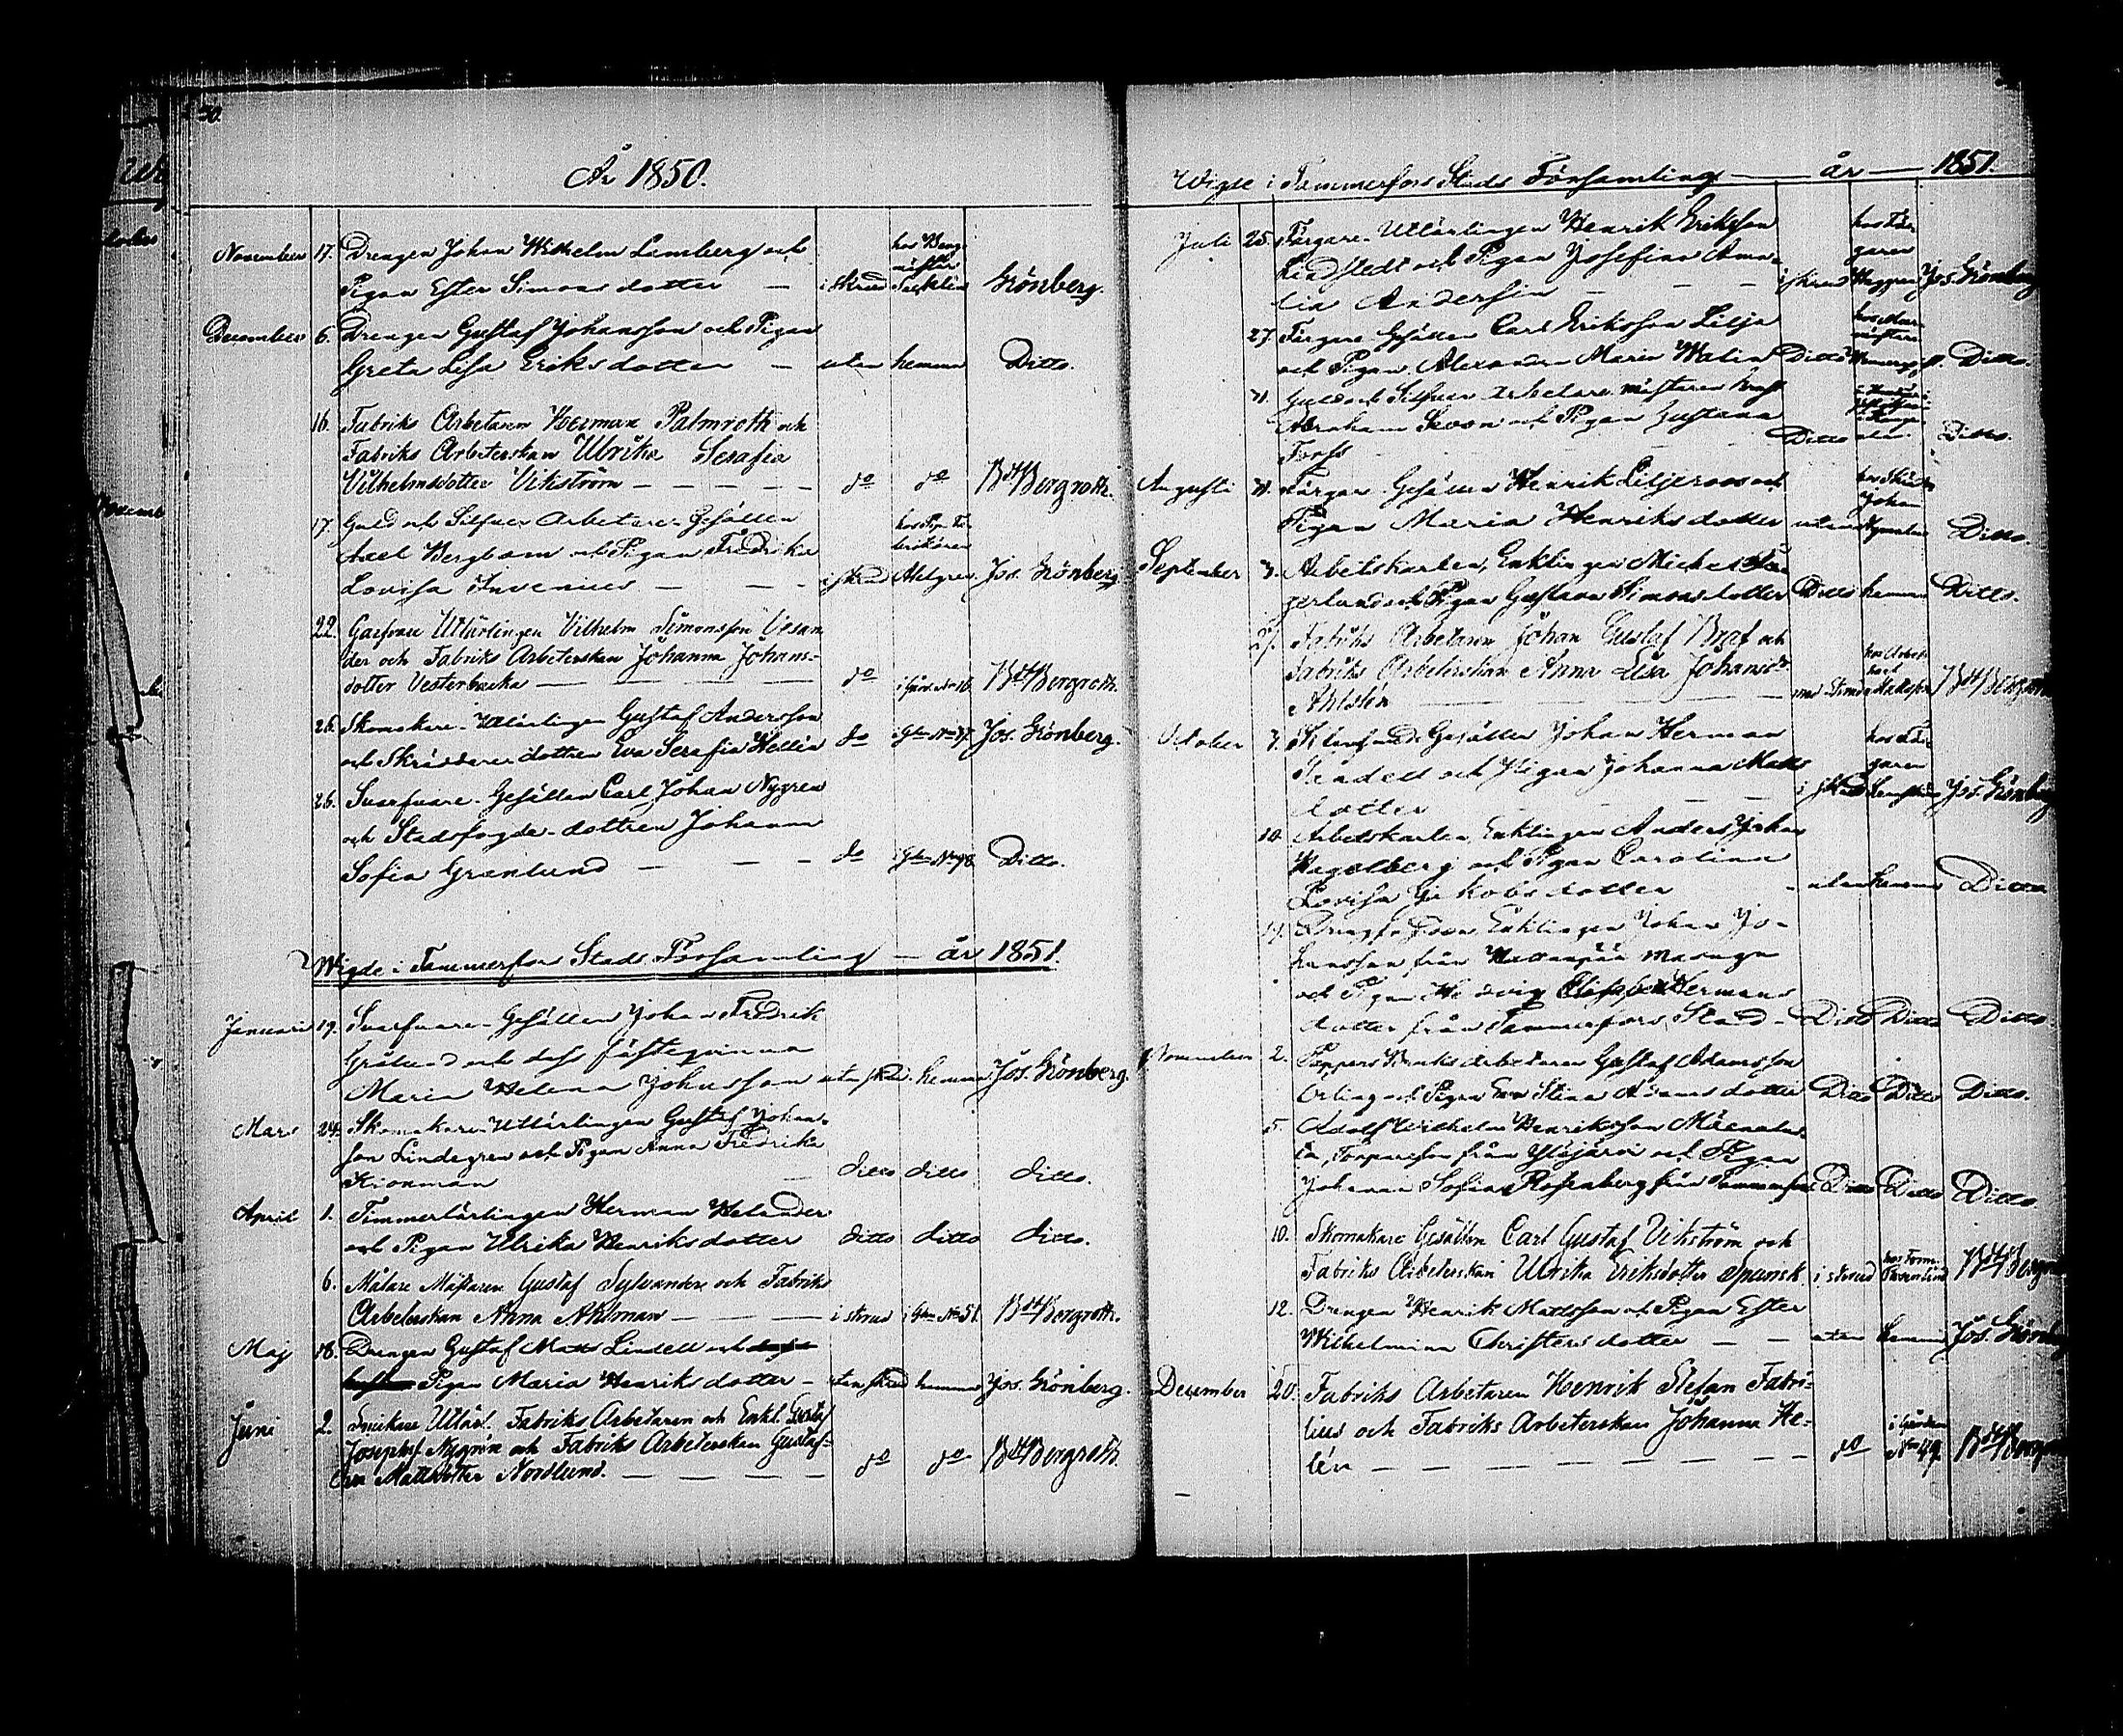 År 1850.
November 17. Drengen Johan Wilhelm Lemberg och
Pigan Ester Simonsdotter — i skrud Grönberg.
December 6. Drengen Gustaf Johansson och Pigan
Greta Lisa Eriksdotter — utan hemma Ditto.
16. Fabriks Arbetaren Herman Palmroth och
Fabriks Arbeterskan Ulrika Serafia
Vilhelmsdotter Vikström — — — — do do Bdt Bergroth.
17. Guld och Silfver Arbetare-Gesällen
Axel Bergbom och Pigan Fredrika
Lovisa Invenius — — — i skrud Ahlgren. Jos. Grönberg
22. Garfvare Utlärlingen Vilhelm Simonsson Vesan
der och Fabriks Arbeterskan Johanna Johans-
dotter Vesterbacka — — — do i Gård. No 16. Bdt Bergroth.
26. Skomakare-Utlärlingen Gustaf Andersson
och Skräddaredottren Eva Serafia Hellén do Jos. Grönberg.
26. Svarfvare-Gesällen Carl Johan Nygren
och Stadsfogde-dottren Johanna
Sofia Granlund — — — do Ditto.
Wigde i Tammerfors Stads Församling — år 1851.
Januari 19. Svarfvare-Gesällen Johan Fredrik
Grölund och dess fästeqvinna
Maria Helena Johansson utan skrud hemma Jos. Grönberg.
Mars 24. Skomakare-Utlärlingen Gustaf Johans-
son Lindegren och Pigan Anna Fredrika
Kronman — ditto ditto ditto.
April 1. Timmerlärlingen Herman Helander
och Pigan Ulrika Henriksdotter ditto ditto ditto.
6. Målare Mästaren Gustaf Sylvander och Fabriks
Arbeterskan Anna Ahlman — — — i skrud i Gdn No 51. Bdt Bergroth.
Maj 18. Drengen Gustaf Matts Lindell och
Pigan Maria Henriksdotter — utan skrud hemma Jos. Grönberg.
Juni 2. Snickare Utlärl. Fabriks Arbetaren och Enkl. Gustaf
Josephsf Nygrén och Fabriks Arbeterskan Gustaf-
va Mattsdotter Nordlund. — — — — do do Bdt Bergroth.
Wigde i Tammerfors Stads Församling — år — 1851.
Juli 25. Färgare-Utlärlingen Henrik Eriksson
Lindstedt och Pigan Josefina Ama-
lia Andersin — — — i skrud Jos. Grönberg
27. Färgare Gesällen Carl Eriksson Lilja
och Pigan Alexandra Maria Walin Ditto Ditto.
Guld och Silfver Arbetare mästaren
Abraham och Pigan Gustava
Forss Ditto Ditto.
Augusti Färgare-Gesällen Henrik Liljeroos och
Pigan Maria Henriksdotter utan Ditto.
September Arbetskarlen, Enklingen Michel
och Pigan Gustava Simonsdotter Ditto hemma Ditto.
27. Fabriks Arbetaren Johan Gustaf Braf och
Fabriks Arbeterskan Anna Lisa Johansdr
Ahlstén Bdt Bergroth
October 7. Gesällen Johan Herman
och Pigan Johanna Matts
dotter — — — i skrud Jos. Grönberg
10. Arbetskarlen, Enklingen Anders Johan
Hagelberg och Pigan Carolina
Lovisa Jakobsdotter — utan hemma Ditto
Enklingen Johan Jo-
hansson från
och Pigan Hedvig Hermans
dotter från Tammerfors Stad — Ditto Ditto Ditto
November 2. Pappers Bruks Arbetaren Gustaf Adamsson
och Pigan Eva Stina Adamsdotter Ditto Ditto Ditto.
5. Adolf Wilhelm Henriksson
från Ylöjärvi och Pigan
Johanna Sofia Rosenberg från Tammerfors Ditto Ditto Ditto.
10. Skomakare Gesällen Carl Gustaf Vikström och
Fabriks Arbeterskan Ulrika Eriksdotter Spansk i skrud Bdt Bergroth
12. Drengen Henrik Mattsson och Pigan Ester
Wilhelmina Christersdotter — — utan hemma Jos. Grönberg
December 20. Fabriks Arbetaren Henrik Stefan Fabri-
lius och Fabriks Arbeterskan Johanna He-
lén — — — — — — do i Gården No 49. Bdt Bergroth